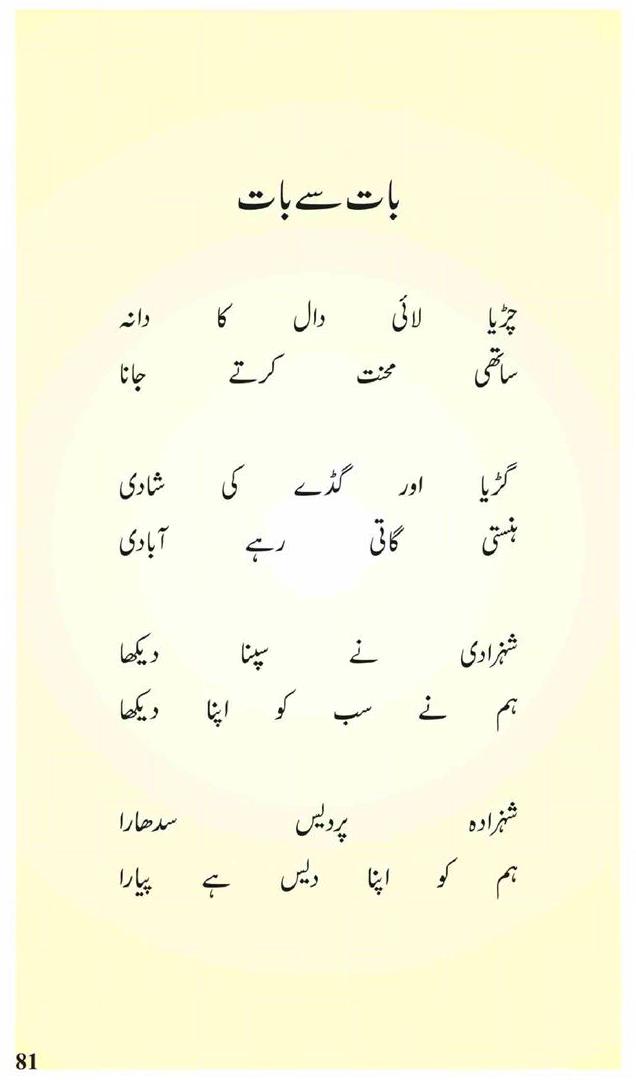 بات سے بات
چڑیا لائی دال کا دانہ
ساتھی محنت کرتے جانا
گڑیا اور گڈے کی شادی
ہنستی گاتی رہے آبادی
شہزادی نے سپنا دیکھا
ہم نے سب کو اپنا دیکھا
شہزادہ پردیس سدھارا
ہم کو اپنا دیس ہے پیارا
81